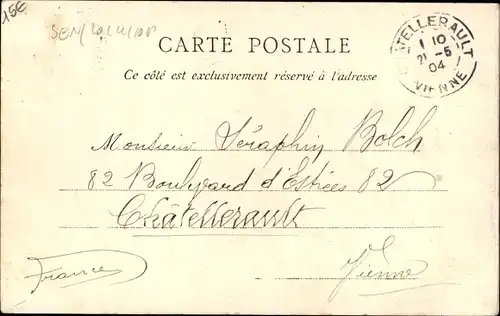 15€
CARTE POSTALE
Ce côté est exclusivement réservé à l'adresse
CHATELLERAULT
10
21 -5
04
VIENNE
Monsieur Séraphin Bolch
82 Boulevard d'Estrées 82
Châtellerault
Vienne
France